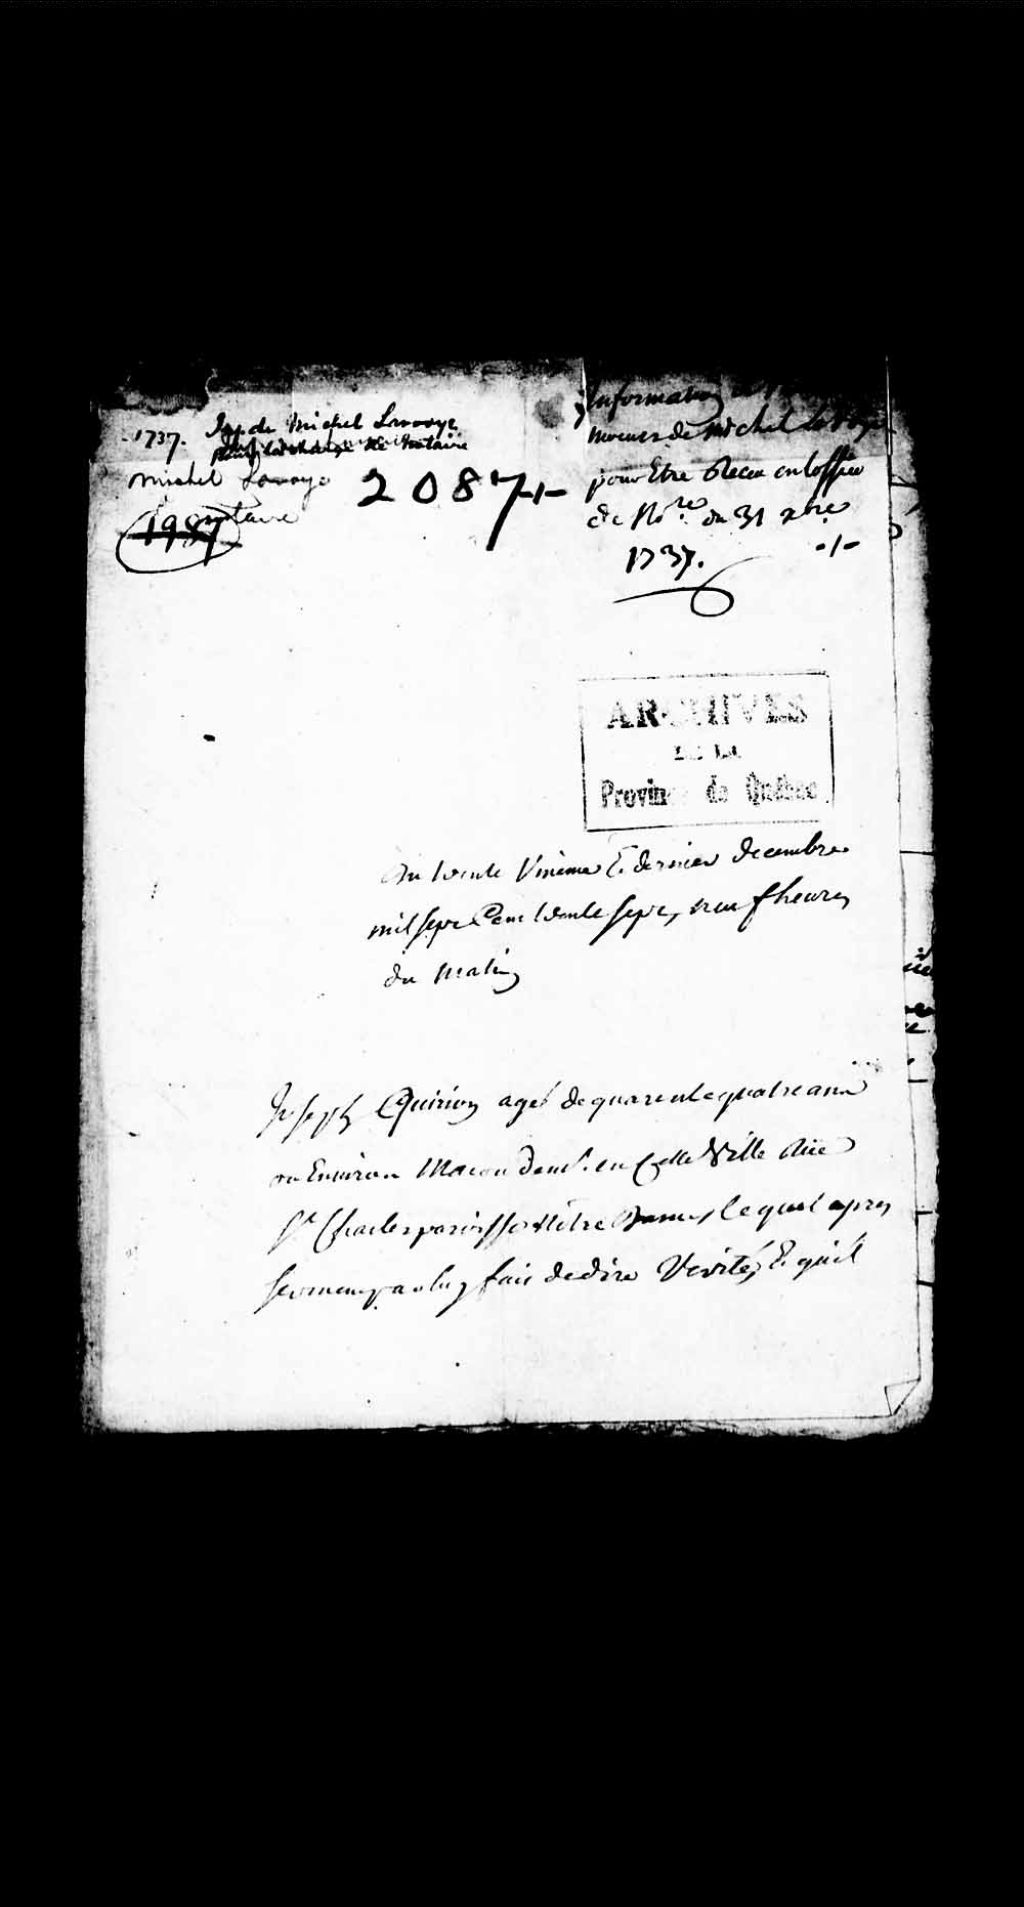 1737. Inf. de Michel Lavoye
pour la charge de Notaire
Michel Lavoye
notaire
1987
2087 -/-
Information
moeurs de Michel Lavoye
pour Etre Receu en loffice
de No.re du 31 xbre
1737. -/-
ARCHIVES
DE LA
Province de Québec
Du trente Unieme & dernier decembre
mil sept Cent trente sept, neuf heures
du matin
Joseph Quirion agé de quarente quatre ans
ou Environ Macon dem.t en Cette Ville Rüe
S.t Charles paroisse Nôtre Dame, lequel apres
serment par luy fait de dire Verité, & quil